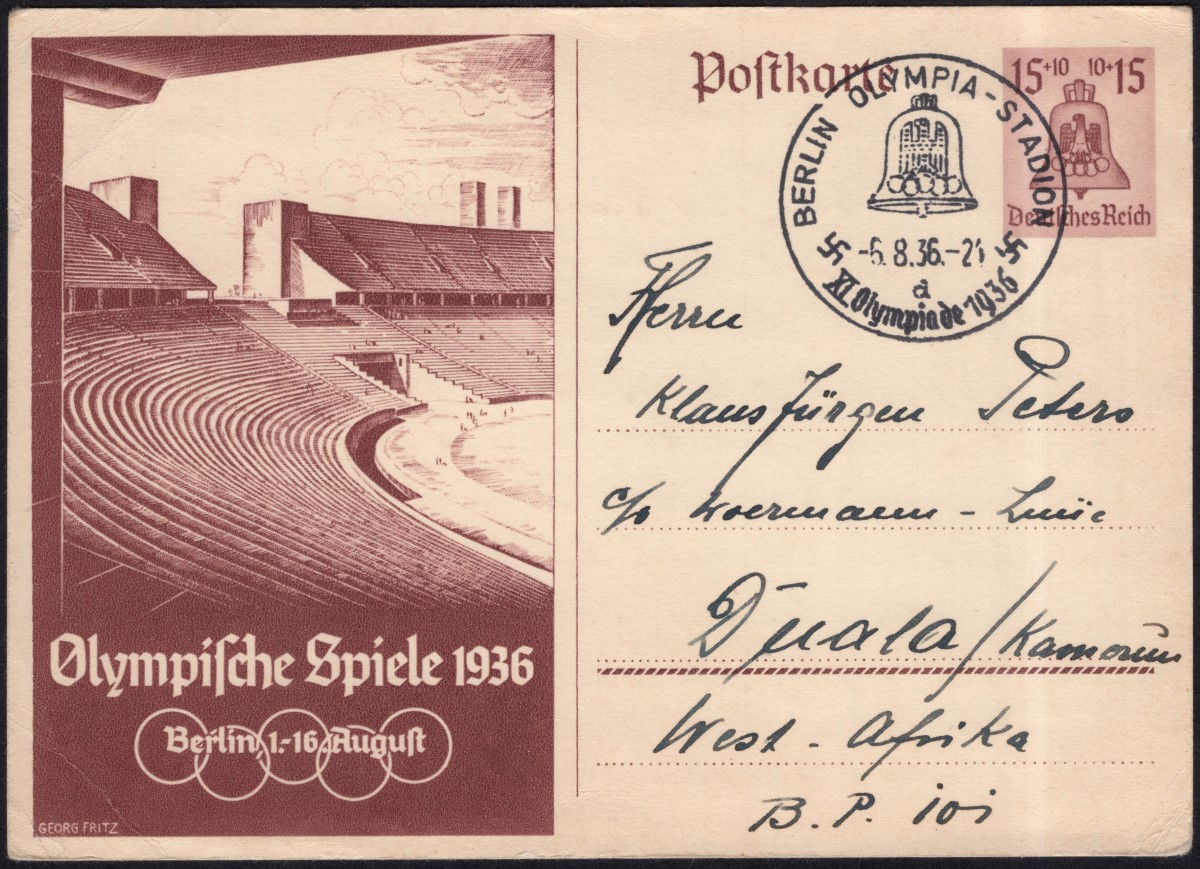 Olympische Spiele 1936
Berlin, 1.-16. August
GEORG FRITZ
Postkarte
15+10 10+15
Deutsches Reich
BERLIN OLYMPIA-STADION
-6.8.36.-21
d
XI. Olympiade 1936
Herrn
Klaus Jürgen Peters
c/o Woermann - Linie
Duala / Kamerun
West - Afrika
B. P. 101